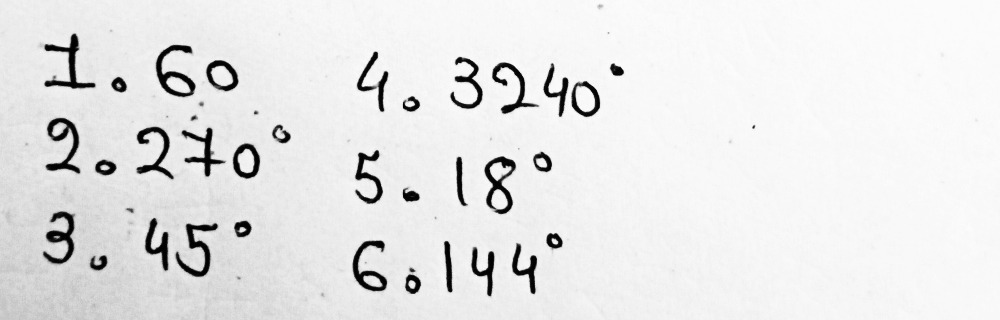 1. 60
2. 270°
3. 45°
4. 3240°
5. 18°
6. 144°